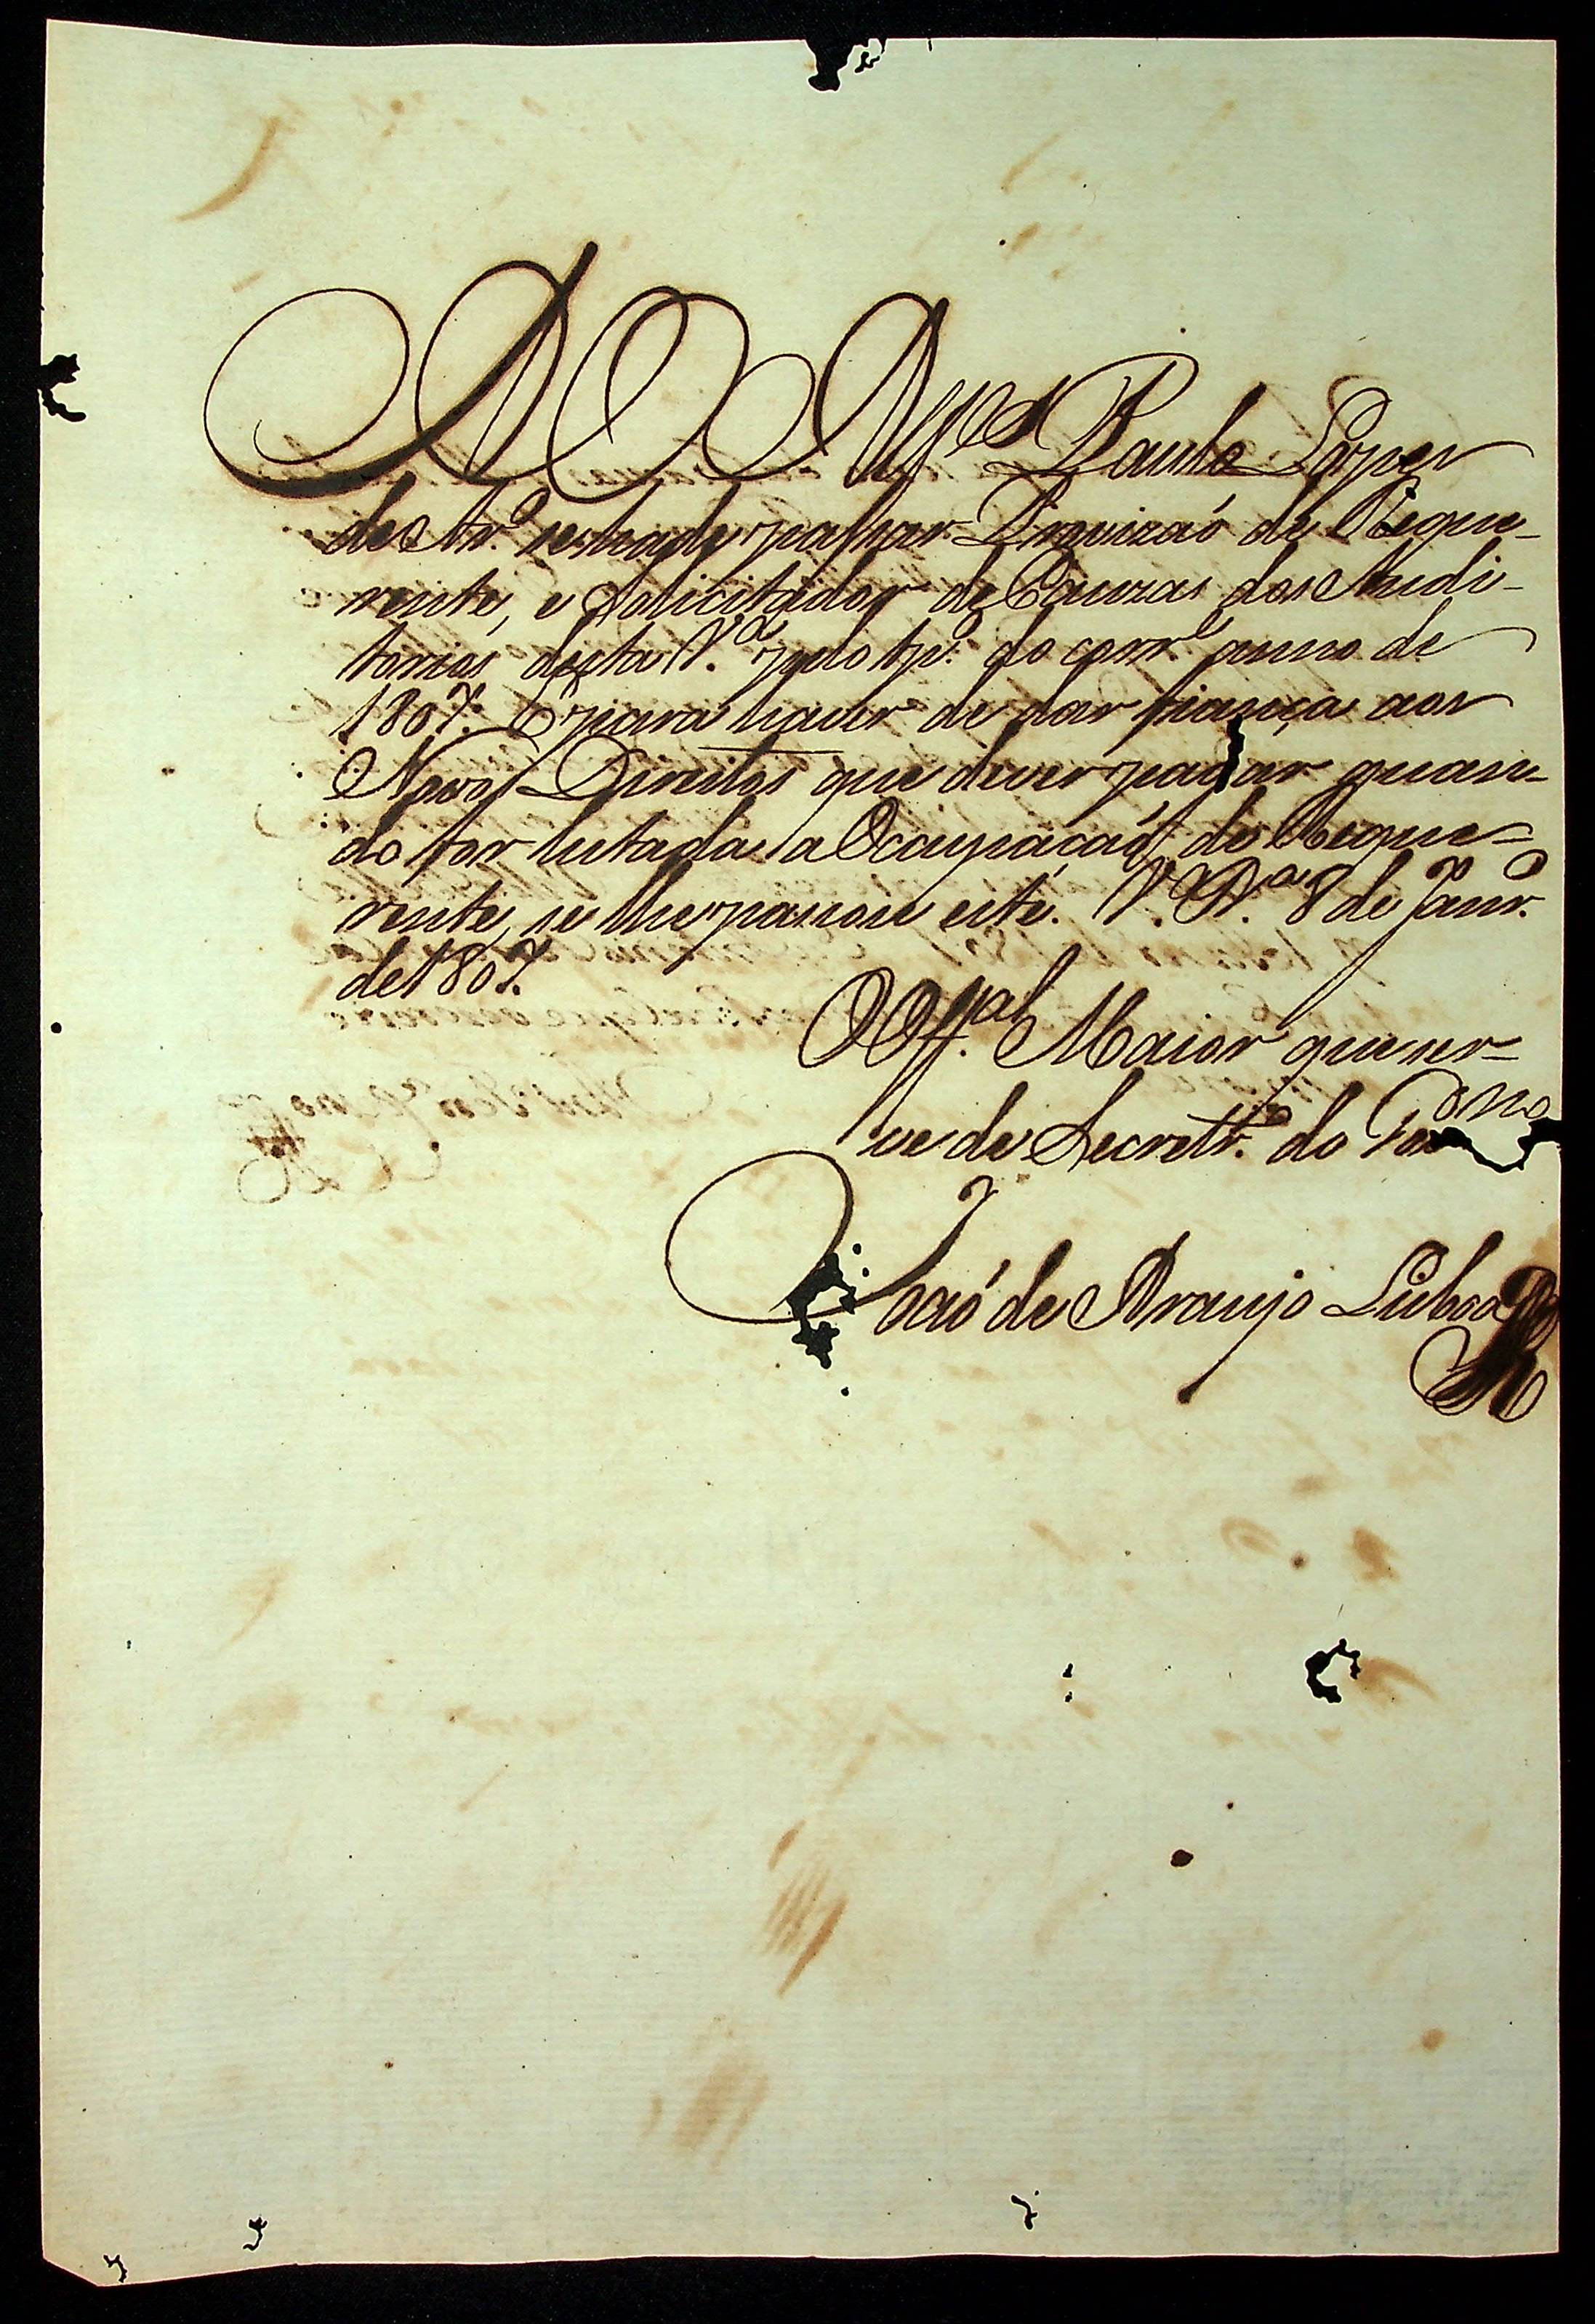 A O Alf.es Paulo Lopes
de Ar.o se hade passar Provizaõ de Reque-
rente, e Solicitador de Cauzas dos Audi-
torios desta V.a pelo tp.o do corr.e anno de
1807. E para haver de dar fiança aos
Novos Direitos que dever pagar quan-
do for lutada a Ocupaçaõ de Reque-
rente, se lhe passou este. V. R.a 8 de Janr.o
de 1807.
O Off.al Maior que ser-
ve de Secretr.o do Gov.no
Joaõ de Araujo Lisboa